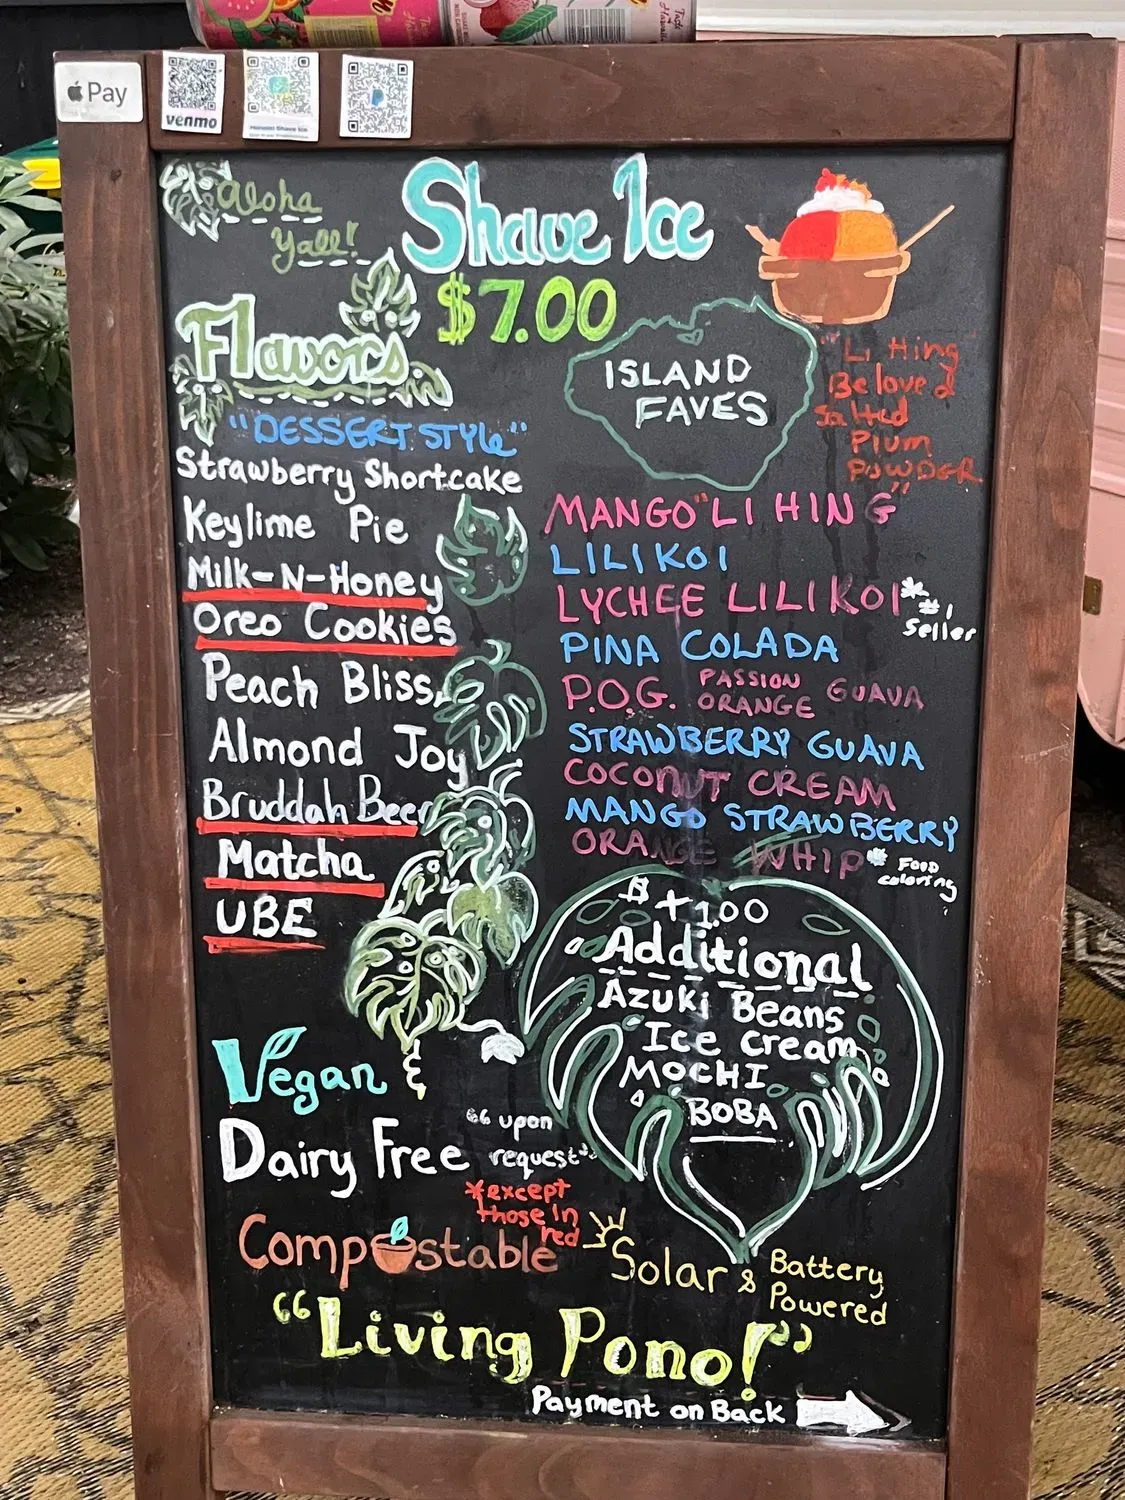 Pay
venmo
Aloha
Yall!
Shave Ice
$7.00
Flavors
"DESSERT STYLE"
Strawberry Shortcake
Keylime Pie
Milk-N-Honey
Oreo Cookies
Peach Bliss
Almond Joy
Bruddah Beer
Matcha
UBE
ISLAND
FAVES
"Li Hing
Beloved
Salted
Plum
POWDER"
MANGO "LI HING
LILIKOI
LYCHEE LILIKOI*
#1
Seller
PINA COLADA
P.O.G. PASSION ORANGE GUAVA
STRAWBERRY GUAVA
COCONUT CREAM
MANGO STRAWBERRY
ORANGE WHIP* FOOD
coloring
$ + 1.00
Additional
AZUKI Beans
Ice cream
MOCHI
BOBA
Vegan
Dairy Free "upon
request"
*except
those in
red
Compostable
Solar & Battery
Powered
"Living Pono!"
Payment on Back